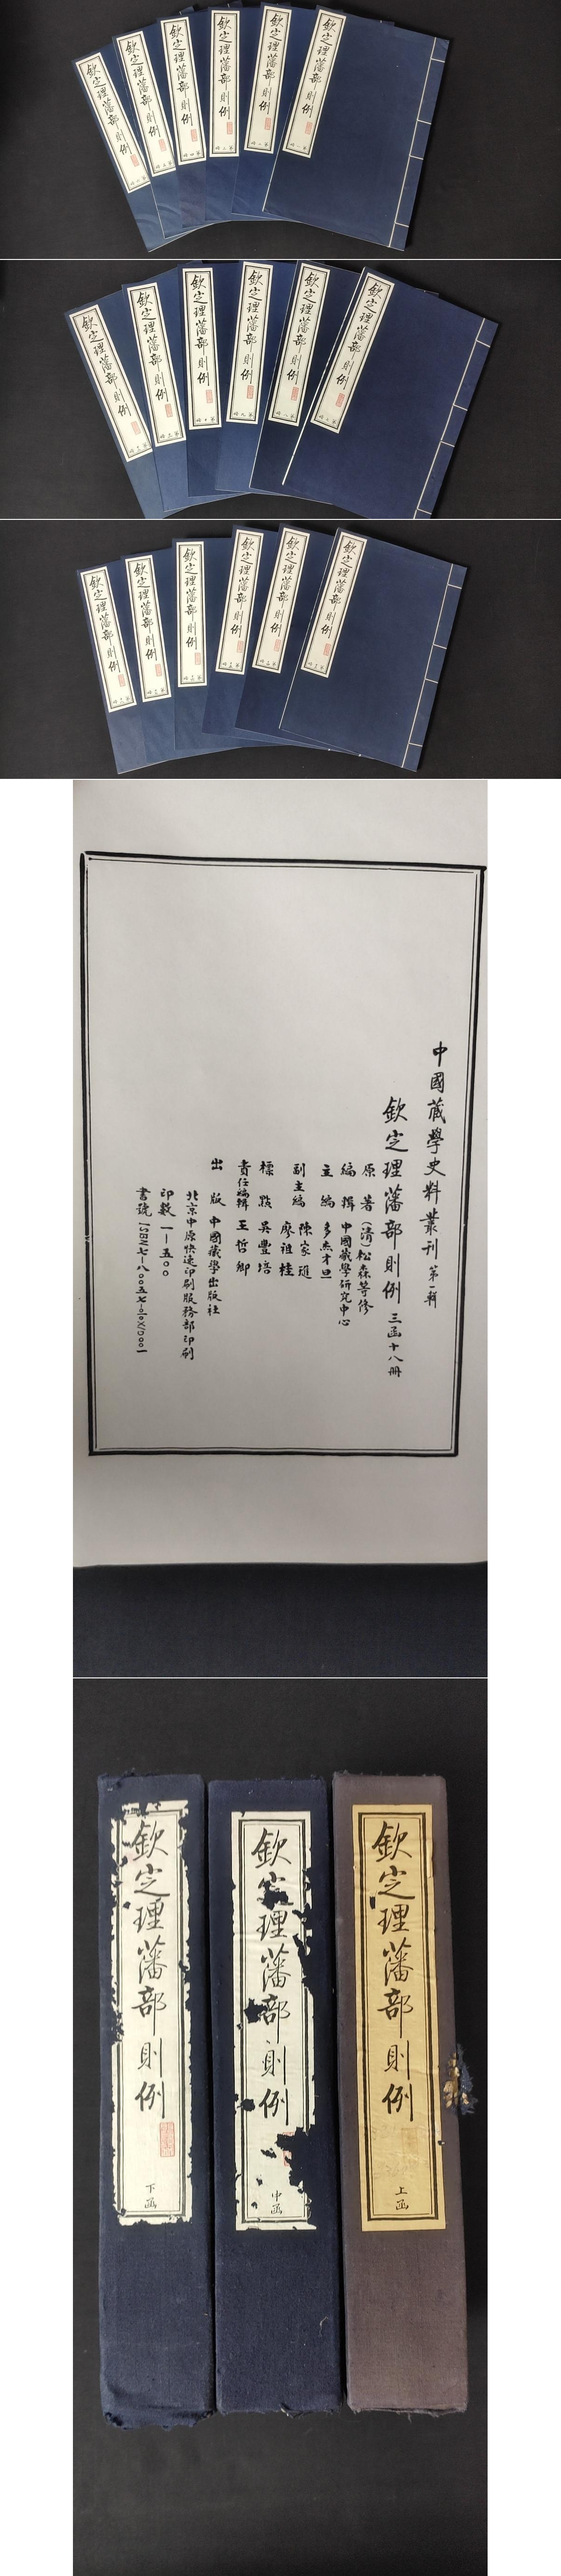 欽定理藩部則例 第一冊
欽定理藩部則例 第二冊
欽定理藩部則例 第三冊
欽定理藩部則例 第四冊
欽定理藩部則例 第五冊
欽定理藩部則例 第六冊
欽定理藩部則例 第七冊
欽定理藩部則例 第八冊
欽定理藩部則例 第九冊
欽定理藩部則例 第十冊
欽定理藩部則例
欽定理藩部則例
欽定理藩部則例
欽定理藩部則例
欽定理藩部則例
欽定理藩部則例
欽定理藩部則例
欽定理藩部則例
中國藏學史料叢刊 第一輯
欽定理藩部則例 三函十八冊
原著 (清)松森等修
編輯 中國藏學研究中心
主編 多杰才旦
副主編 陳家璡
廖祖桂
標點 吳豐培
責任編輯 王哲卿
出版 中國藏學出版社
北京中原快速印刷服務部印刷
印數 一—五〇〇
書號 ISBN七—八〇〇五七—〇一〇—X/D〇〇一
欽定理藩部則例 上函
欽定理藩部則例 中函
欽定理藩部則例 下函